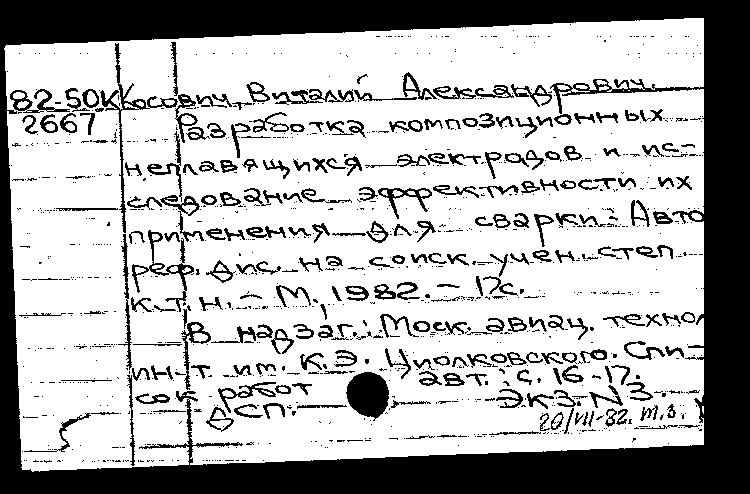 82-50К Косович, Виталий Александрович.
2667 Разработка композиционных
неплавящихся электродов и ис-
следование эффективности их
применения для сварки: Авто
реф. дис. на соиск. учен. степ.
к.т.н. - М., 1982. - 17с.
В надзаг.: Моск. авиац. технол
ин-т им. К.Э. Циолковского. Спи-
сок работ авт.: с. 16-17.
ДСП. Экз. N3.
20/VII-82. т.з.